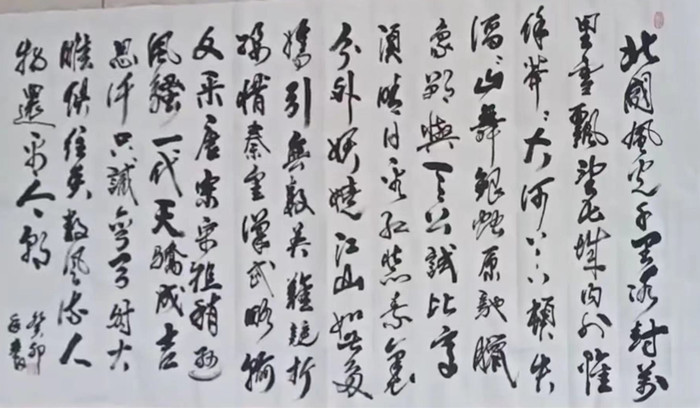 北國風光千里冰封萬
里雪飄望長城內外惟
餘莽々大河上下頓失
滔々山舞銀蛇原馳臘
象欲與天公試比高
須晴日看紅裝素裹
分外妖嬈江山如此多
嬌引無數英雄競折
腰惜秦皇漢武略輸
文采唐宗宋祖稍遜
風騷一代天驕成吉
思汗只識彎弓射大
雕俱往矣數風流人
物還看今朝
癸卯